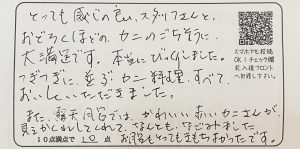 とっても感じの良い、スタッフさんと、
おどろくほどの カニのごちそうに
大満足です。本当にびっくりしました。
つぎつぎに、並ぶ カニ料理、すべて
おいしくいただきました。
また、露天風呂では、かわいい 赤い カニさんが
見えかくれしてくれて、なんとも、なごみました
お湯もとってもきもちよかったです。
10点満点で 10 点
スマホでも投稿
OK!チェック欄
記入後フロント
へお渡し下さい。